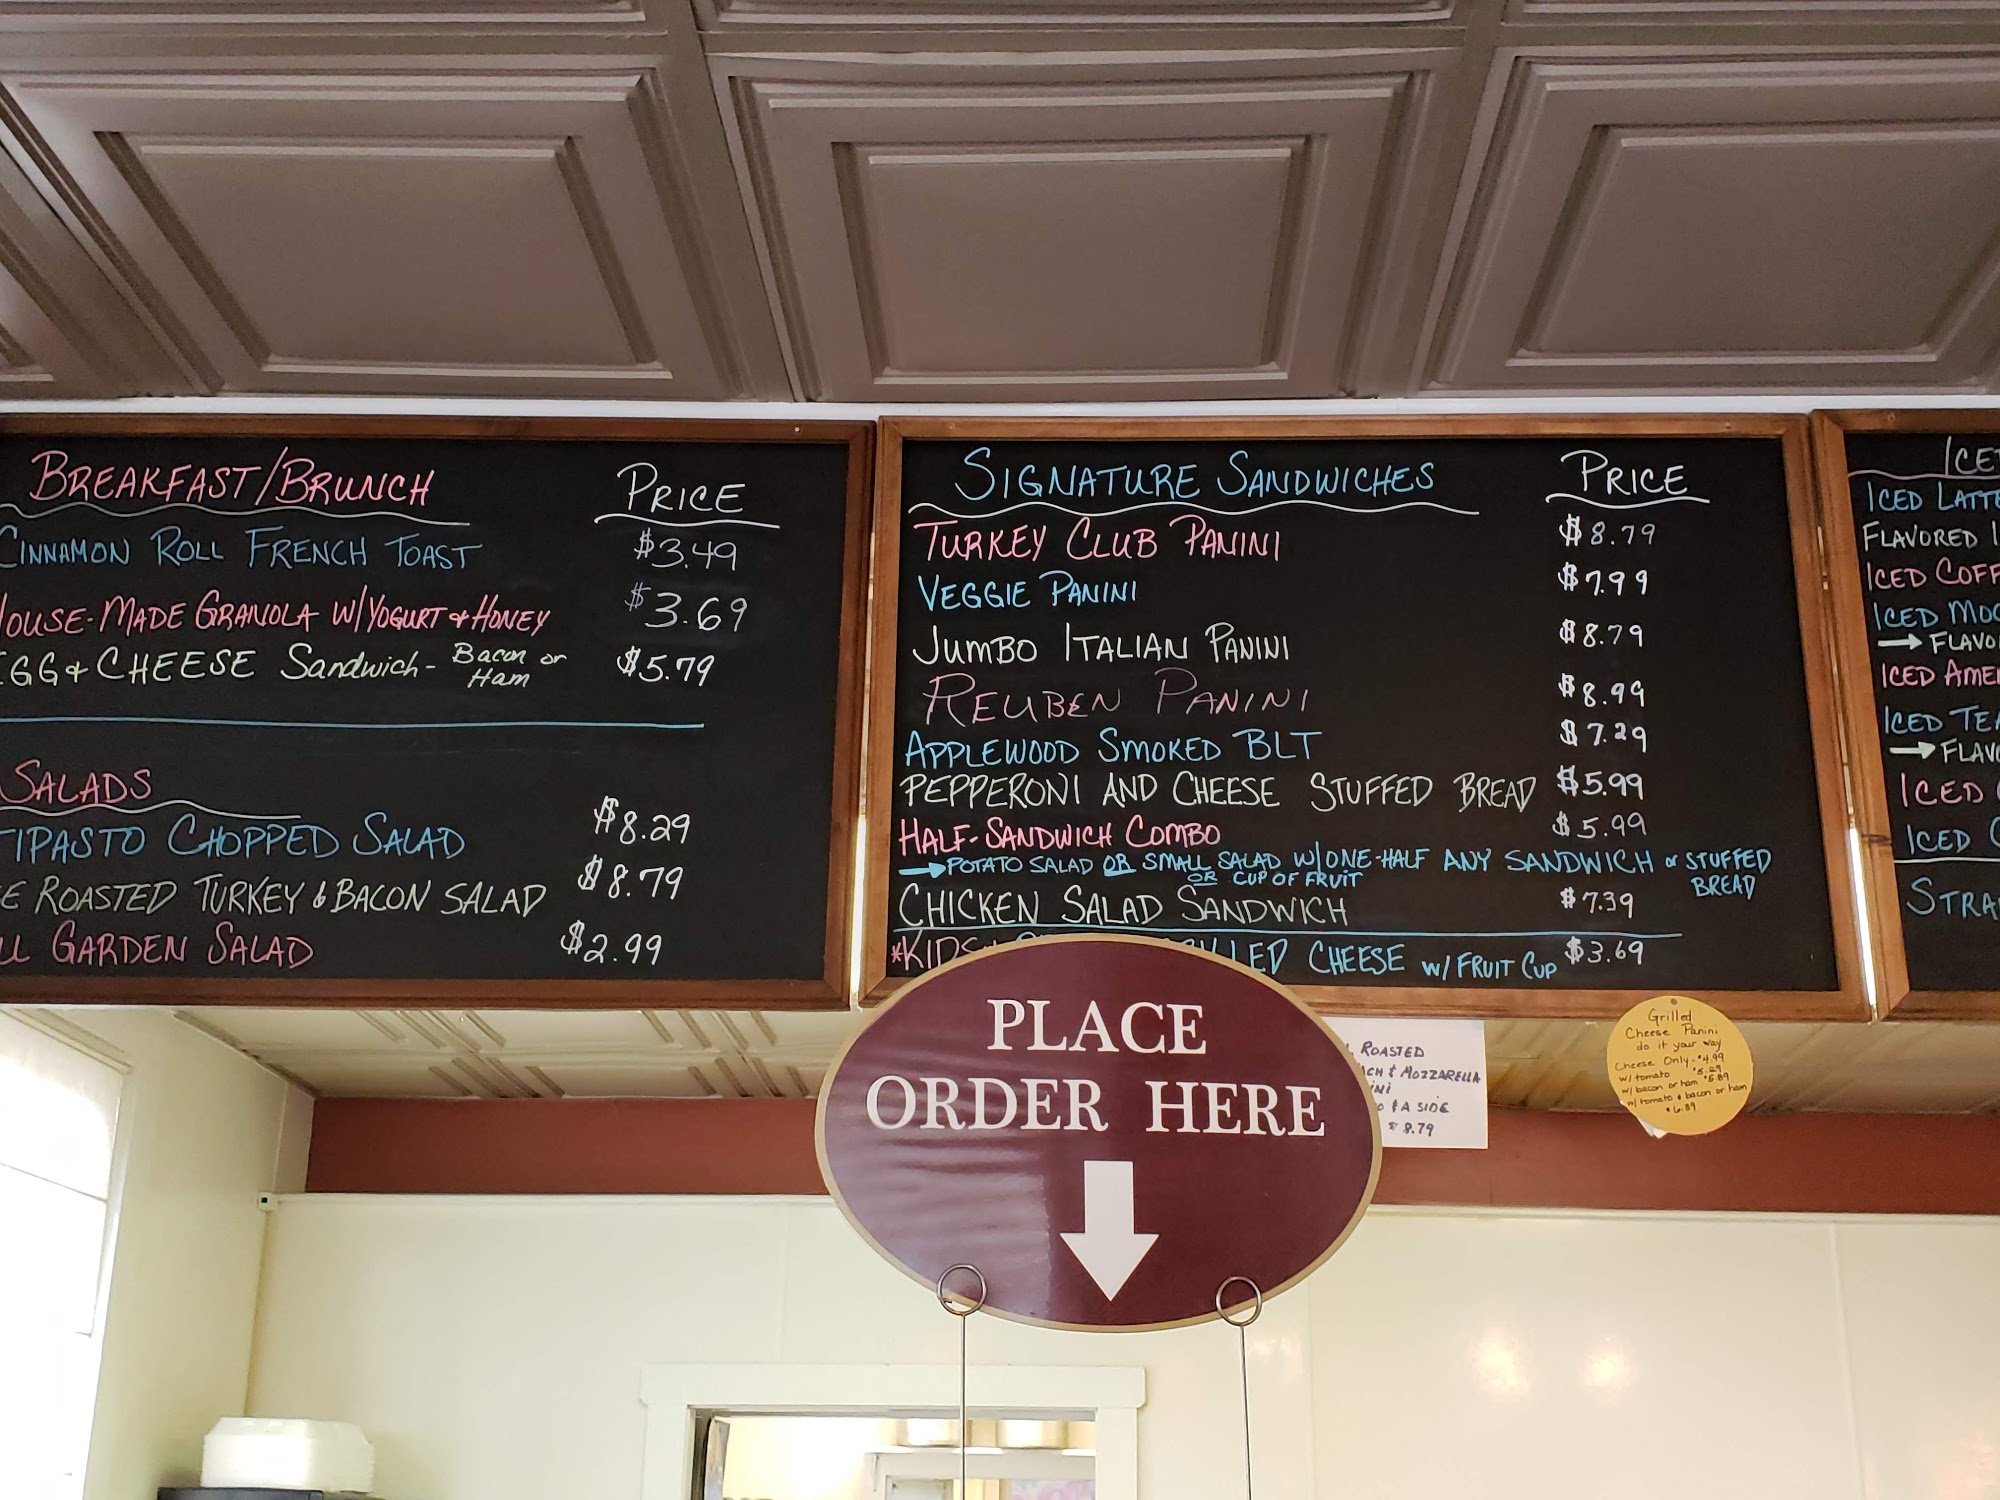 BREAKFAST/BRUNCH PRICE
CINNAMON ROLL FRENCH TOAST $3.49
HOUSE-MADE GRANOLA W/YOGURT & HONEY $3.69
EGG & CHEESE Sandwich - Bacon or Ham $5.79
SALADS
TIPASTO CHOPPED SALAD $8.29
E ROASTED TURKEY & BACON SALAD $8.79
LL GARDEN SALAD $2.99
SIGNATURE SANDWICHES PRICE
TURKEY CLUB PANINI $8.79
VEGGIE PANINI $7.99
JUMBO ITALIAN PANINI $8.79
REUBEN PANINI $8.99
APPLEWOOD SMOKED BLT $7.29
PEPPERONI AND CHEESE STUFFED BREAD $5.99
HALF-SANDWICH COMBO $5.99
→POTATO SALAD OR SMALL SALAD W/ONE-HALF ANY SANDWICH or STUFFED
OR CUP OF FRUIT BREAD
CHICKEN SALAD SANDWICH $7.39
*KIDS LLED CHEESE W/ FRUIT CUP $3.69
ICE
ICED LATTE
FLAVORED I
ICED COFF
ICED MOC
→ FLAVO
ICED AME
ICED TEA
→ FLAVO
ICED
ICED C
STRA
PLACE
ORDER HERE
ROASTED
ACH & MOZZARELLA
INI
& A SIDE
$8.79
Grilled
Cheese Panini
do it your way
Cheese Only - $4.99
w/ tomato $5.29
w/ bacon or ham $5.89
w/ tomato & bacon or ham
$6.89